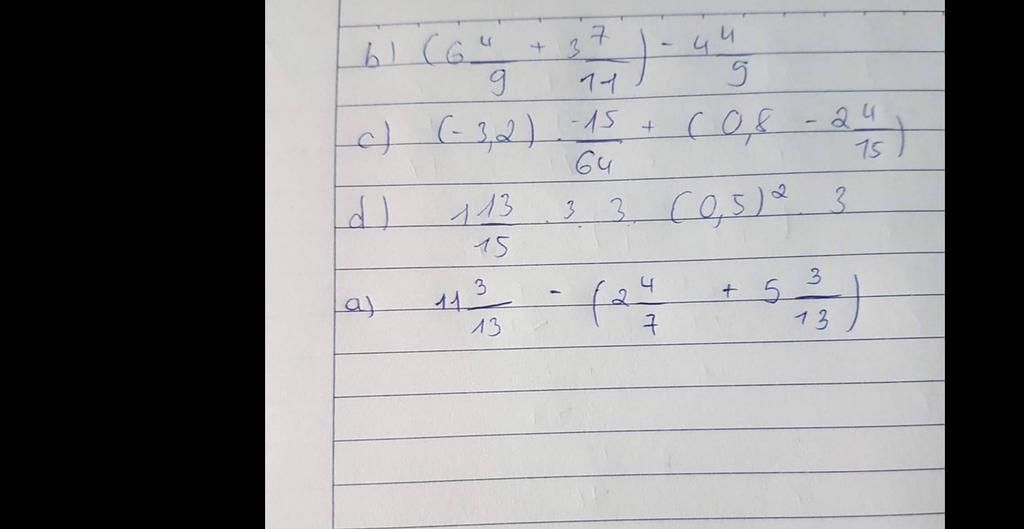 b) (6 4/9 + 3 7/11) - 4 4/9
c) (-3,2) . -15/64 + (0,8 - 2 4/15)
d) 1 13/15 . 3 . 3 . (0,5)² . 3
a) 11 3/13 - (2 4/7 + 5 3/13)